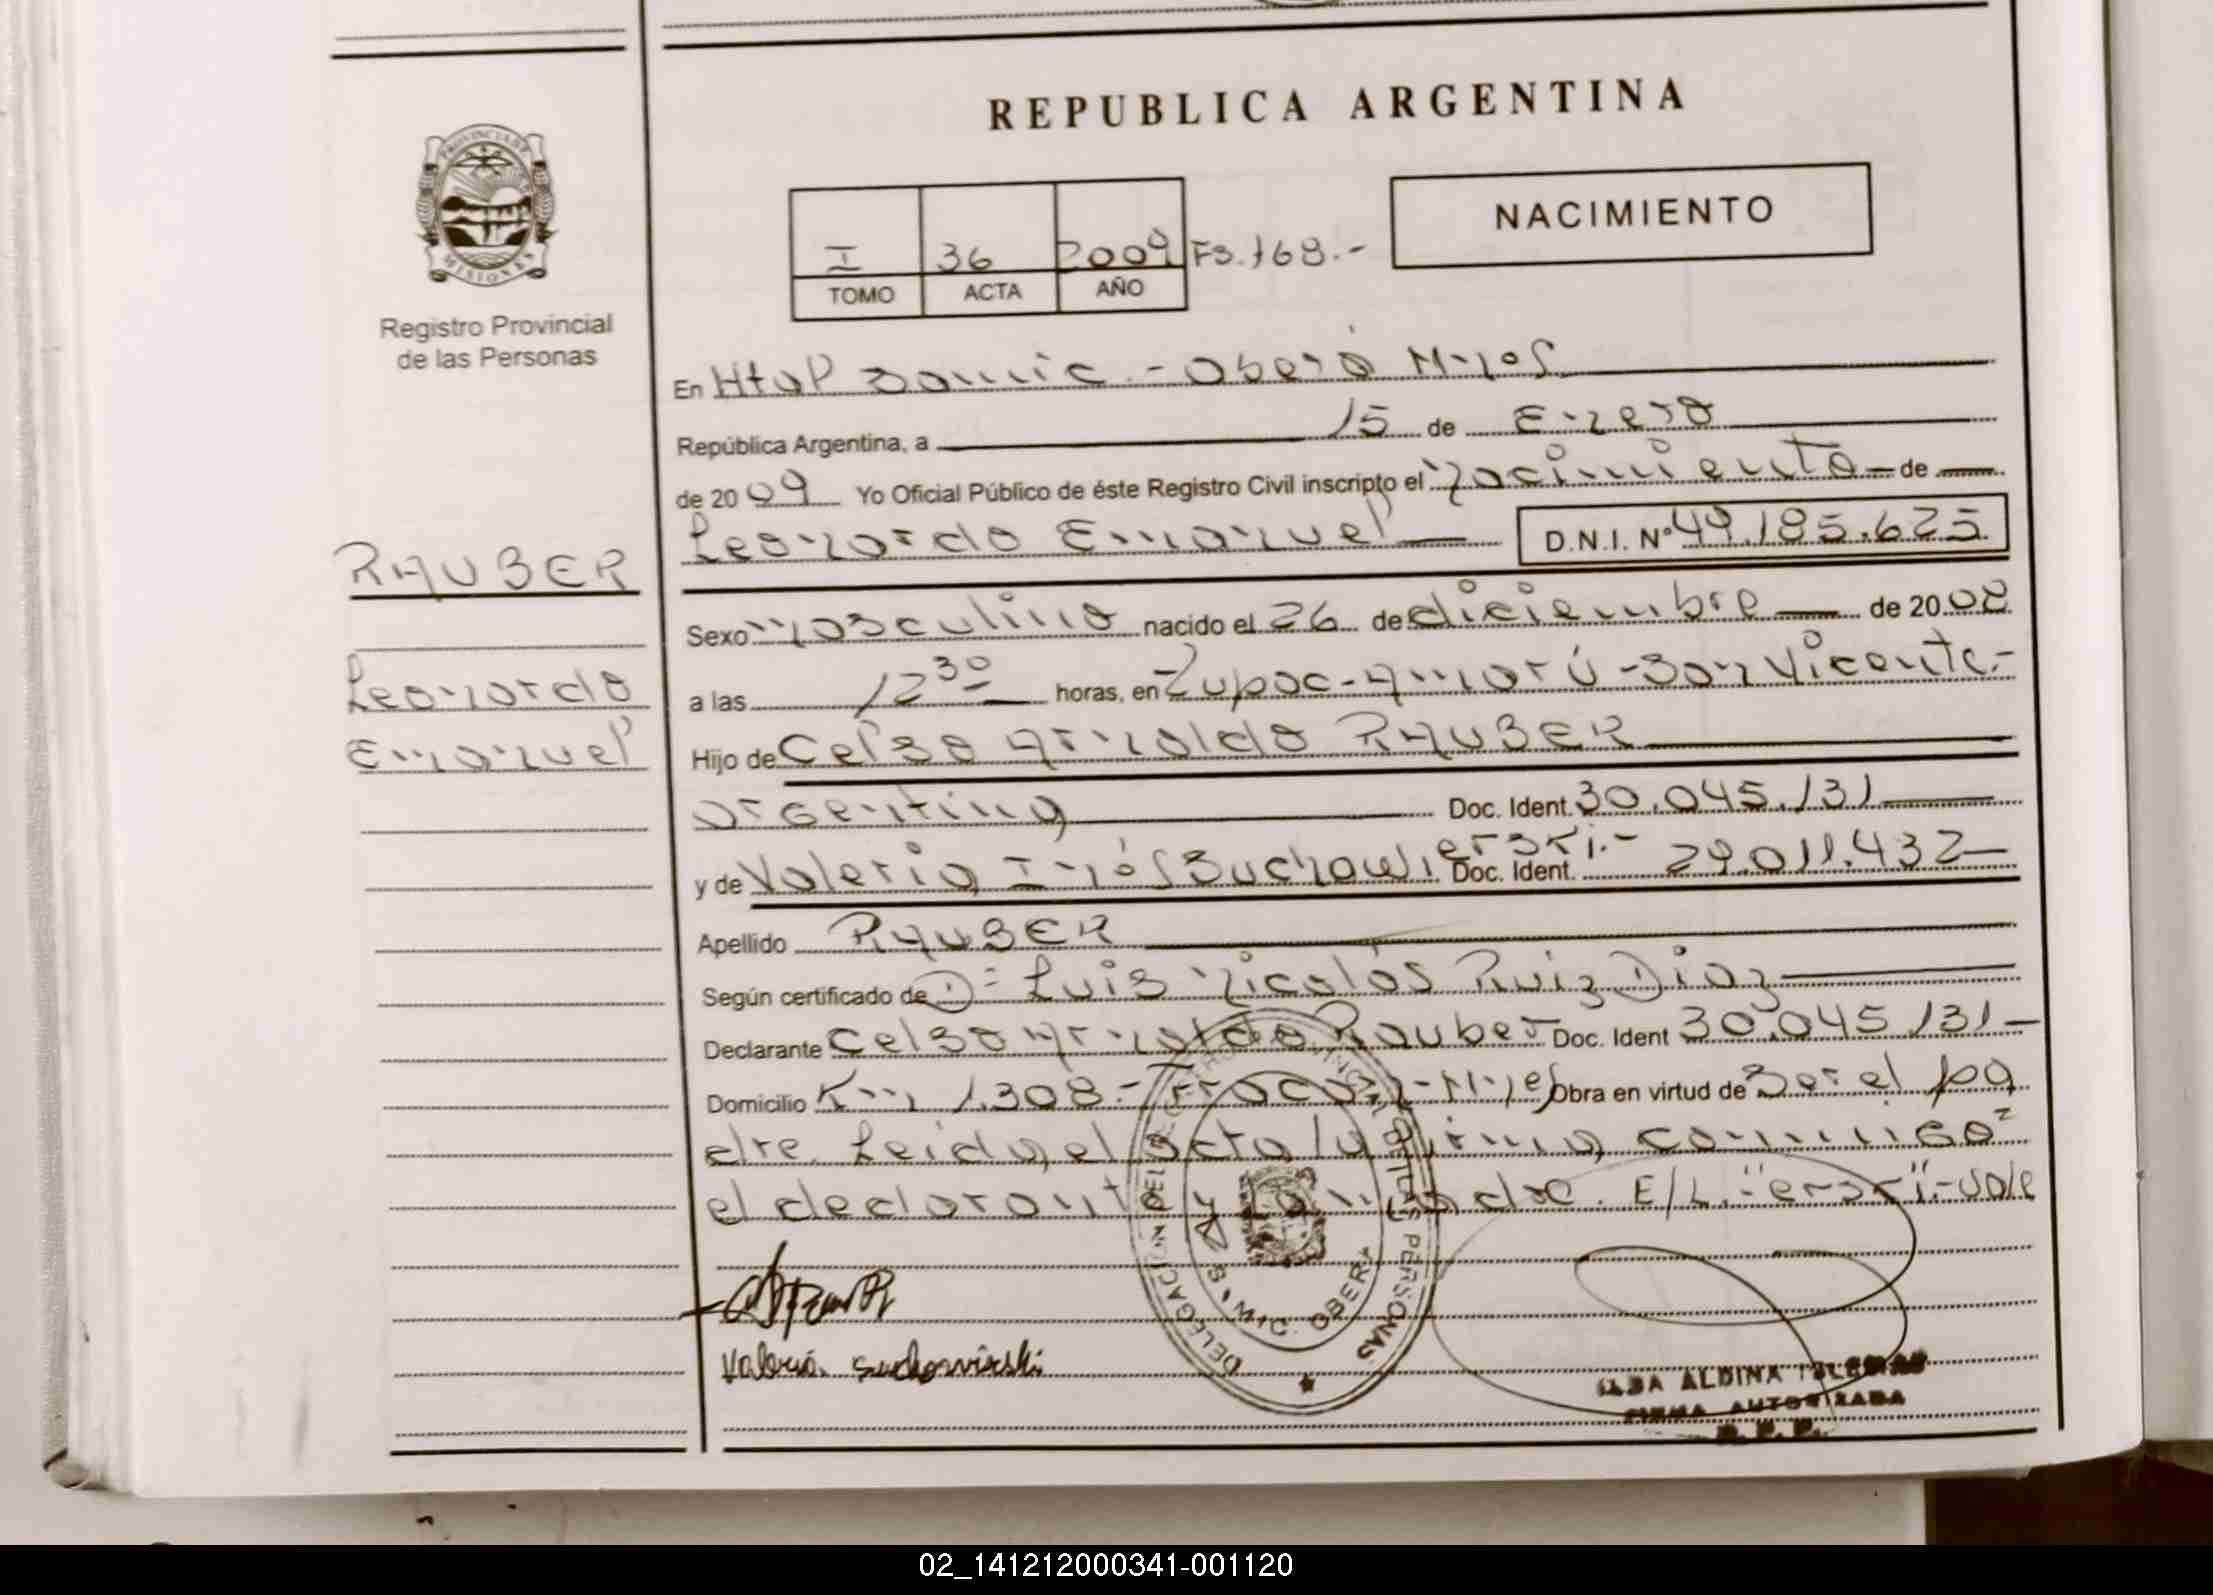 REPUBLICA ARGENTINA
PROVINCIA DE MISIONES
Registro Provincial
de las Personas
NACIMIENTO
I 36 2009 Fs. 168.-
TOMO ACTA AÑO
En Htal Samic - Oberá Mnes.
República Argentina, a 15 de Enero
de 2009 Yo Oficial Público de éste Registro Civil inscripto el nacimiento de
Leonardo Emanuel D.N.I. Nº 49.185.625
RAUBER
Leonardo
Emanuel
Sexo masculino nacido el 26 de diciembre de 2008
a las 12 30 horas, en Tupac-Amarú-San Vicente-
Hijo de Celso Arnaldo RAUBER
argentino Doc. Ident. 30.045.131
y de Valeria Inés Suchowierski.- Doc. Ident. 29.011.432
Apellido RAUBER
Según certificado de D= Luis Nicolás Ruiz Diaz
Declarante Celso Arnaldo Rauber Doc. Ident 30.045.131
Domicilio Km 1.308.- Fracrán-Mnes Obra en virtud de Ser el pa
dre. Leida el acta la firma conmigo=
el declarante y la madre. E/L:"erski"-vale
DELEGACION DEL REGISTRO PROVINCIAL DE LAS PERSONAS
S.A.M.I.C. OBERA
Valeria Suchowierski
ALDINA
FIRMA AUTORIZADA
R. P. P.
02_141212000341-001120